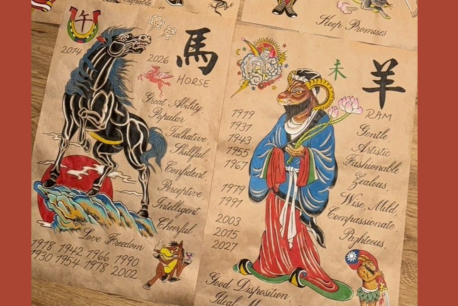 Keep Promises
午
2014
2026
馬
HORSE
Great Ability
Popular
Talkative
Skillful
Confident
Perceptive
Intelligent
Cheerful
Love Freedom
1918 1942 1966 1990
1930 1954 1978 2002
未
羊
RAM
1919
1937
1943
1955
1967
1979
1991
2003
2015
2027
Gentle
Artistic
Fashionable
Zealous
Wise, Mild
Compassionate
Righteous
Good Disposition